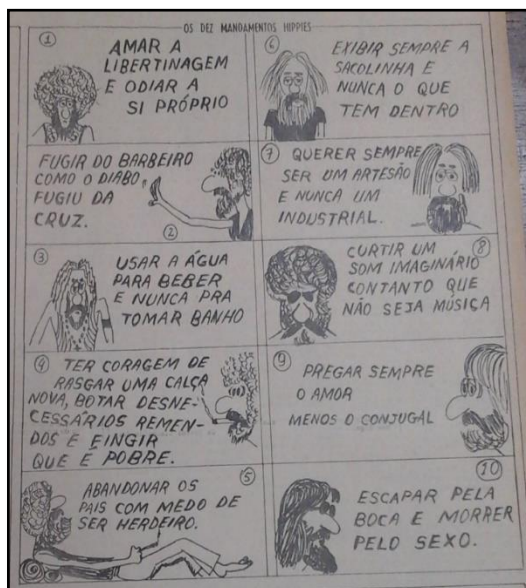 OS DEZ MANDAMENTOS HIPPIES
1
AMAR A
LIBERTINAGEM
E ODIAR A
SI PRÓPRIO
FUGIR DO BARBEIRO
COMO O DIABO
FUGIU DA
CRUZ.
2
3
USAR A ÁGUA
PARA BEBER
E NUNCA PRA
TOMAR BANHO
4
TER CORAGEM DE
RASGAR UMA CALÇA
NOVA, BOTAR DESNE-
CESSÁRIOS REMEN-
DOS E FINGIR
QUE É POBRE.
5
ABANDONAR OS
PAIS COM MEDO DE
SER HERDEIRO.
6
EXIBIR SEMPRE A
SACOLINHA E
NUNCA O QUE
TEM DENTRO
7
QUERER SEMPRE
SER UM ARTESÃO
E NUNCA UM
INDUSTRIAL.
8
CURTIR UM
SOM IMAGINÁRIO
CONTANTO QUE
NÃO SEJA MÚSICA
9
PREGAR SEMPRE
O AMOR
MENOS O CONJUGAL
10
ESCAPAR PELA
BOCA E MORRER
PELO SEXO.